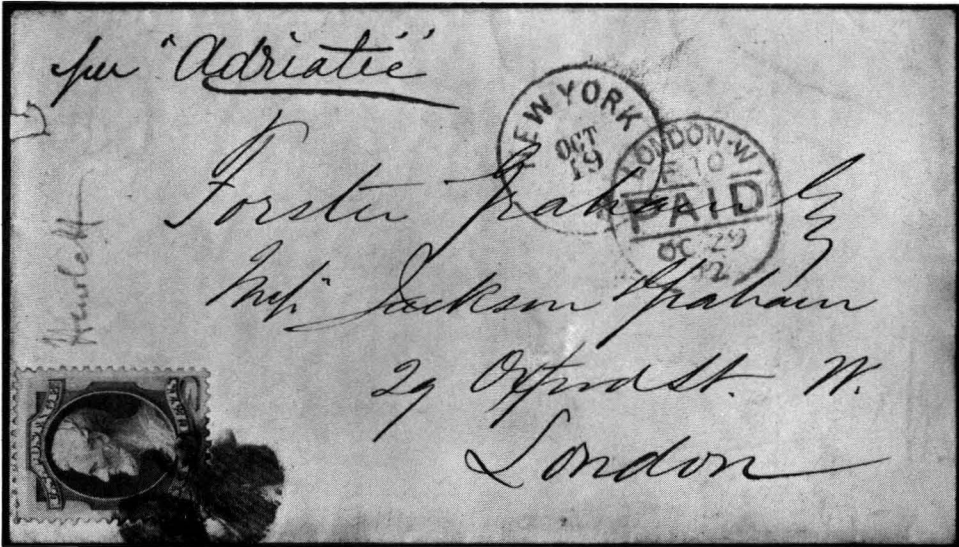 per "Adriatic"
NEW YORK
OCT
19
LONDON·W
PAID
OC 29
Forster Graham Esq
Mess Jackson Graham
29 Oxford St. W.
London
Hewlett